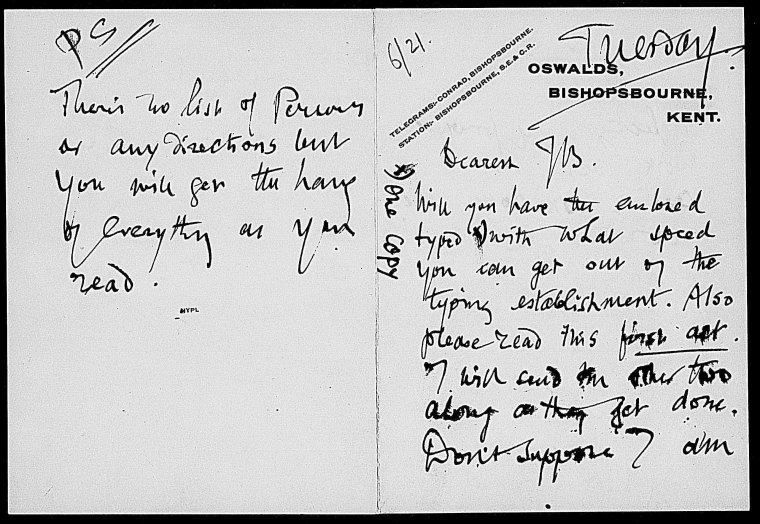 PS
There's no list of Persons
or any directions but
you will get the hang
of everything as you
read.
NYPL
6/21.
Tuesday.
TELEGRAMS:- CONRAD, BISHOPSBOURNE.
STATION:- BISHOPSBOURNE, S.E. & C.R.
OSWALDS,
BISHOPSBOURNE,
KENT.
Dearest JB.
Will you have the enclosed
typed x) with what speed
you can get out of the
typing establishment. Also
please read this first act.
I will send the other two
along as they get done.
Don't suppose I am
x) One Copy